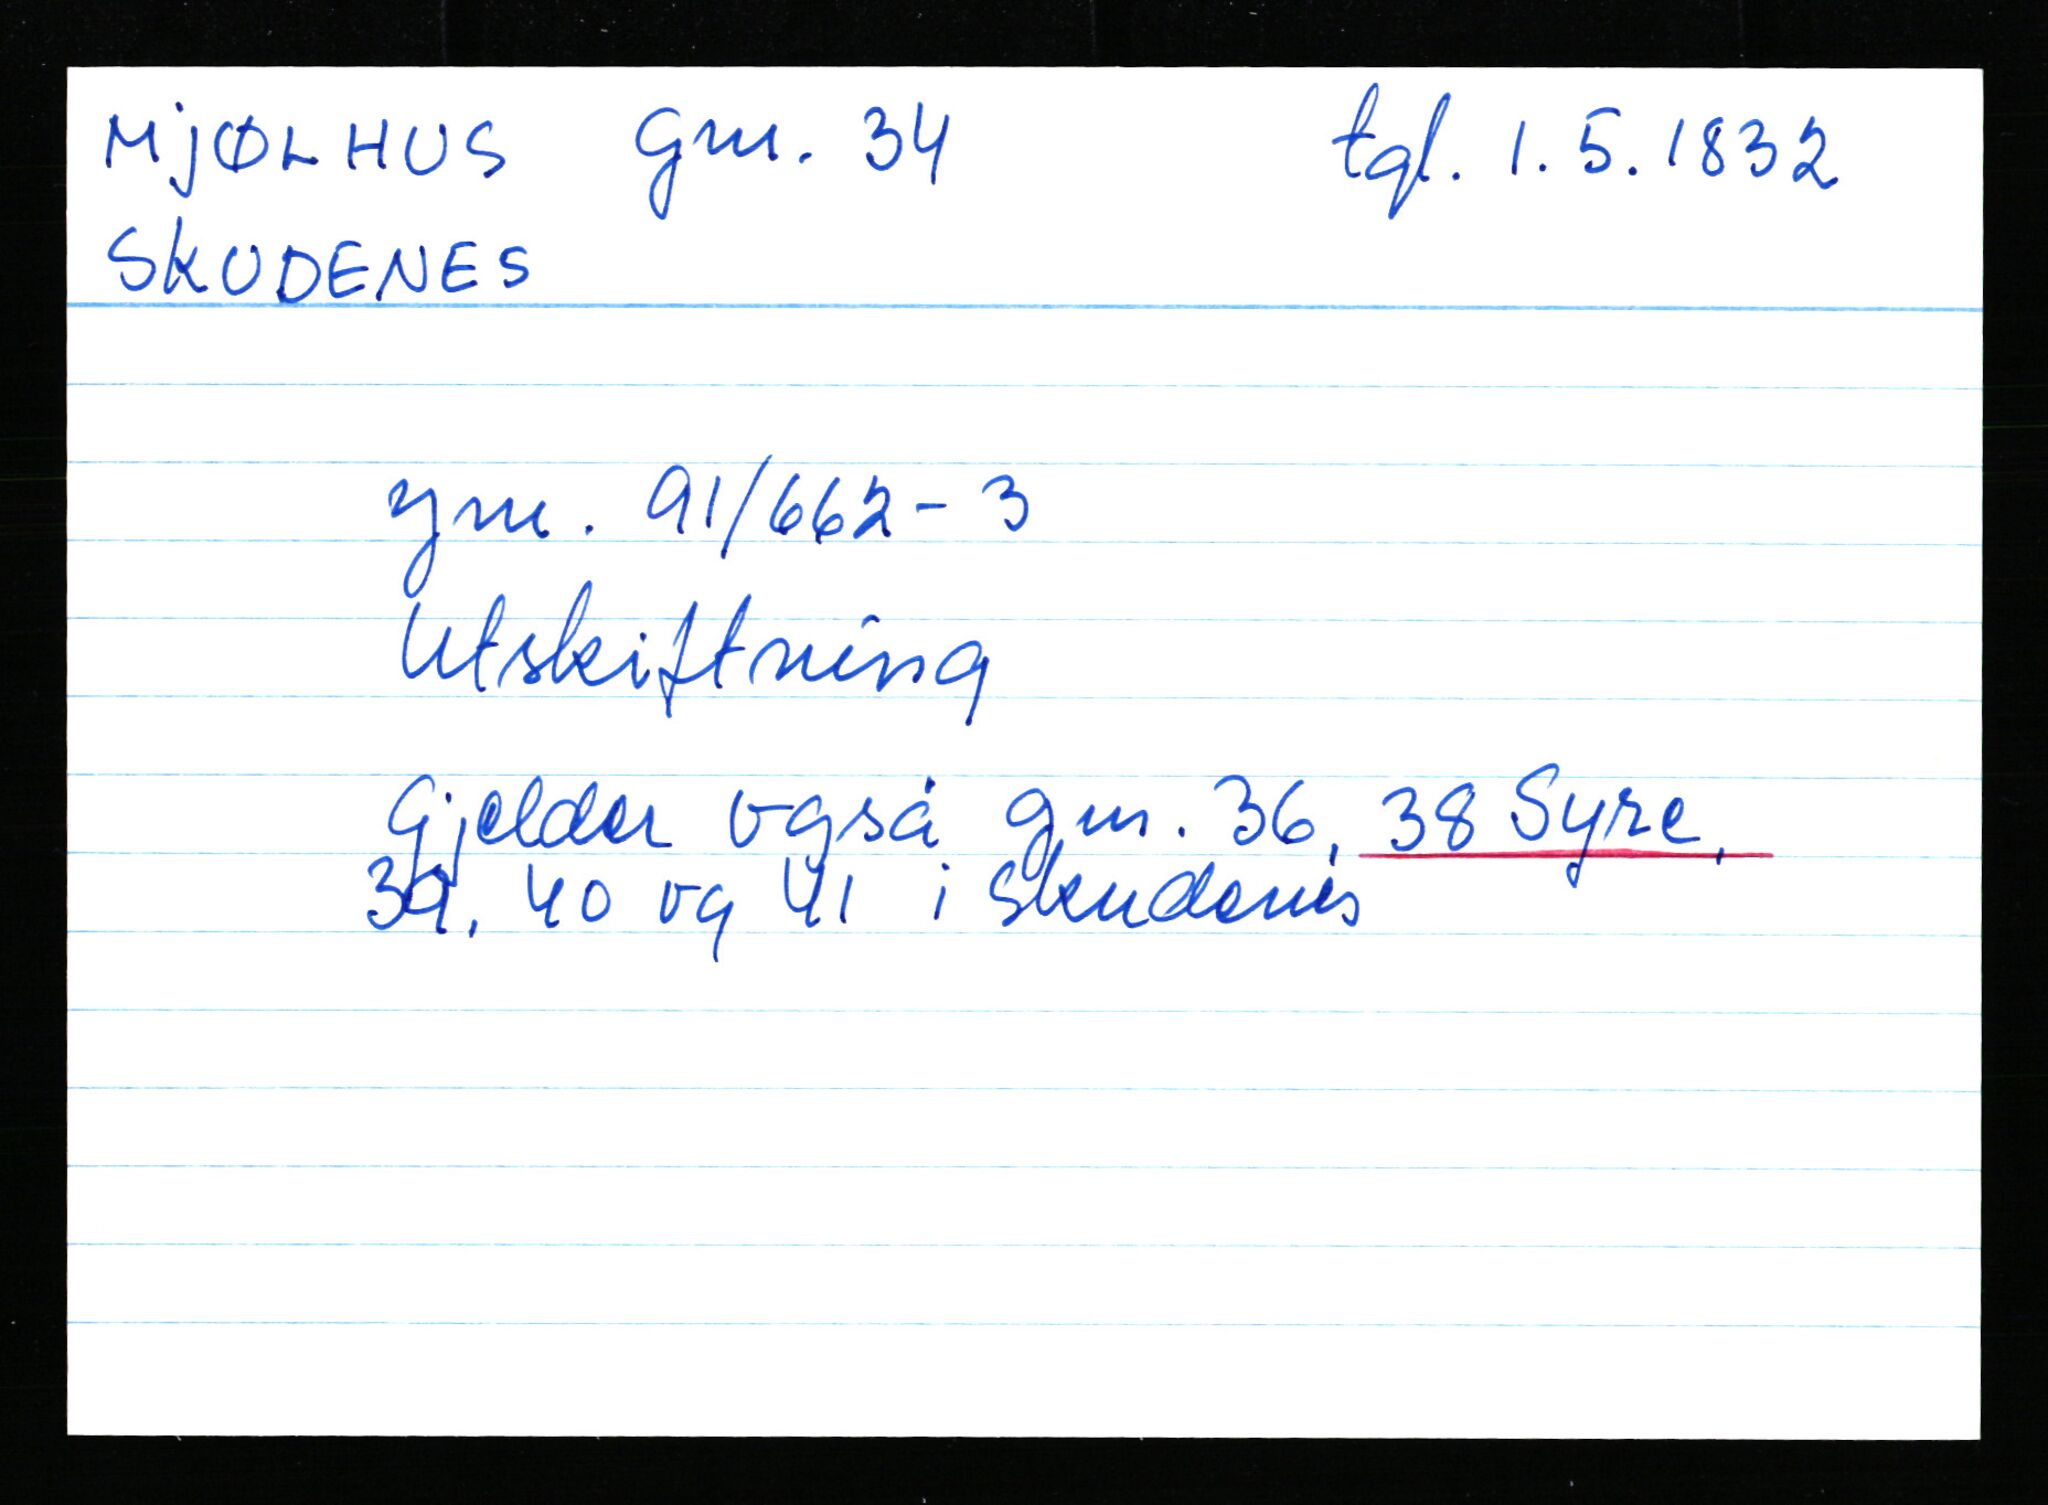 MJØLHUS gnr. 34 tgl. 1.5.1832
SKUDENES
gnr. 91/662-3
Utskiftning
Gjelder også gnr. 36, 38 Syre,
39, 40 og 41 i Skudenes